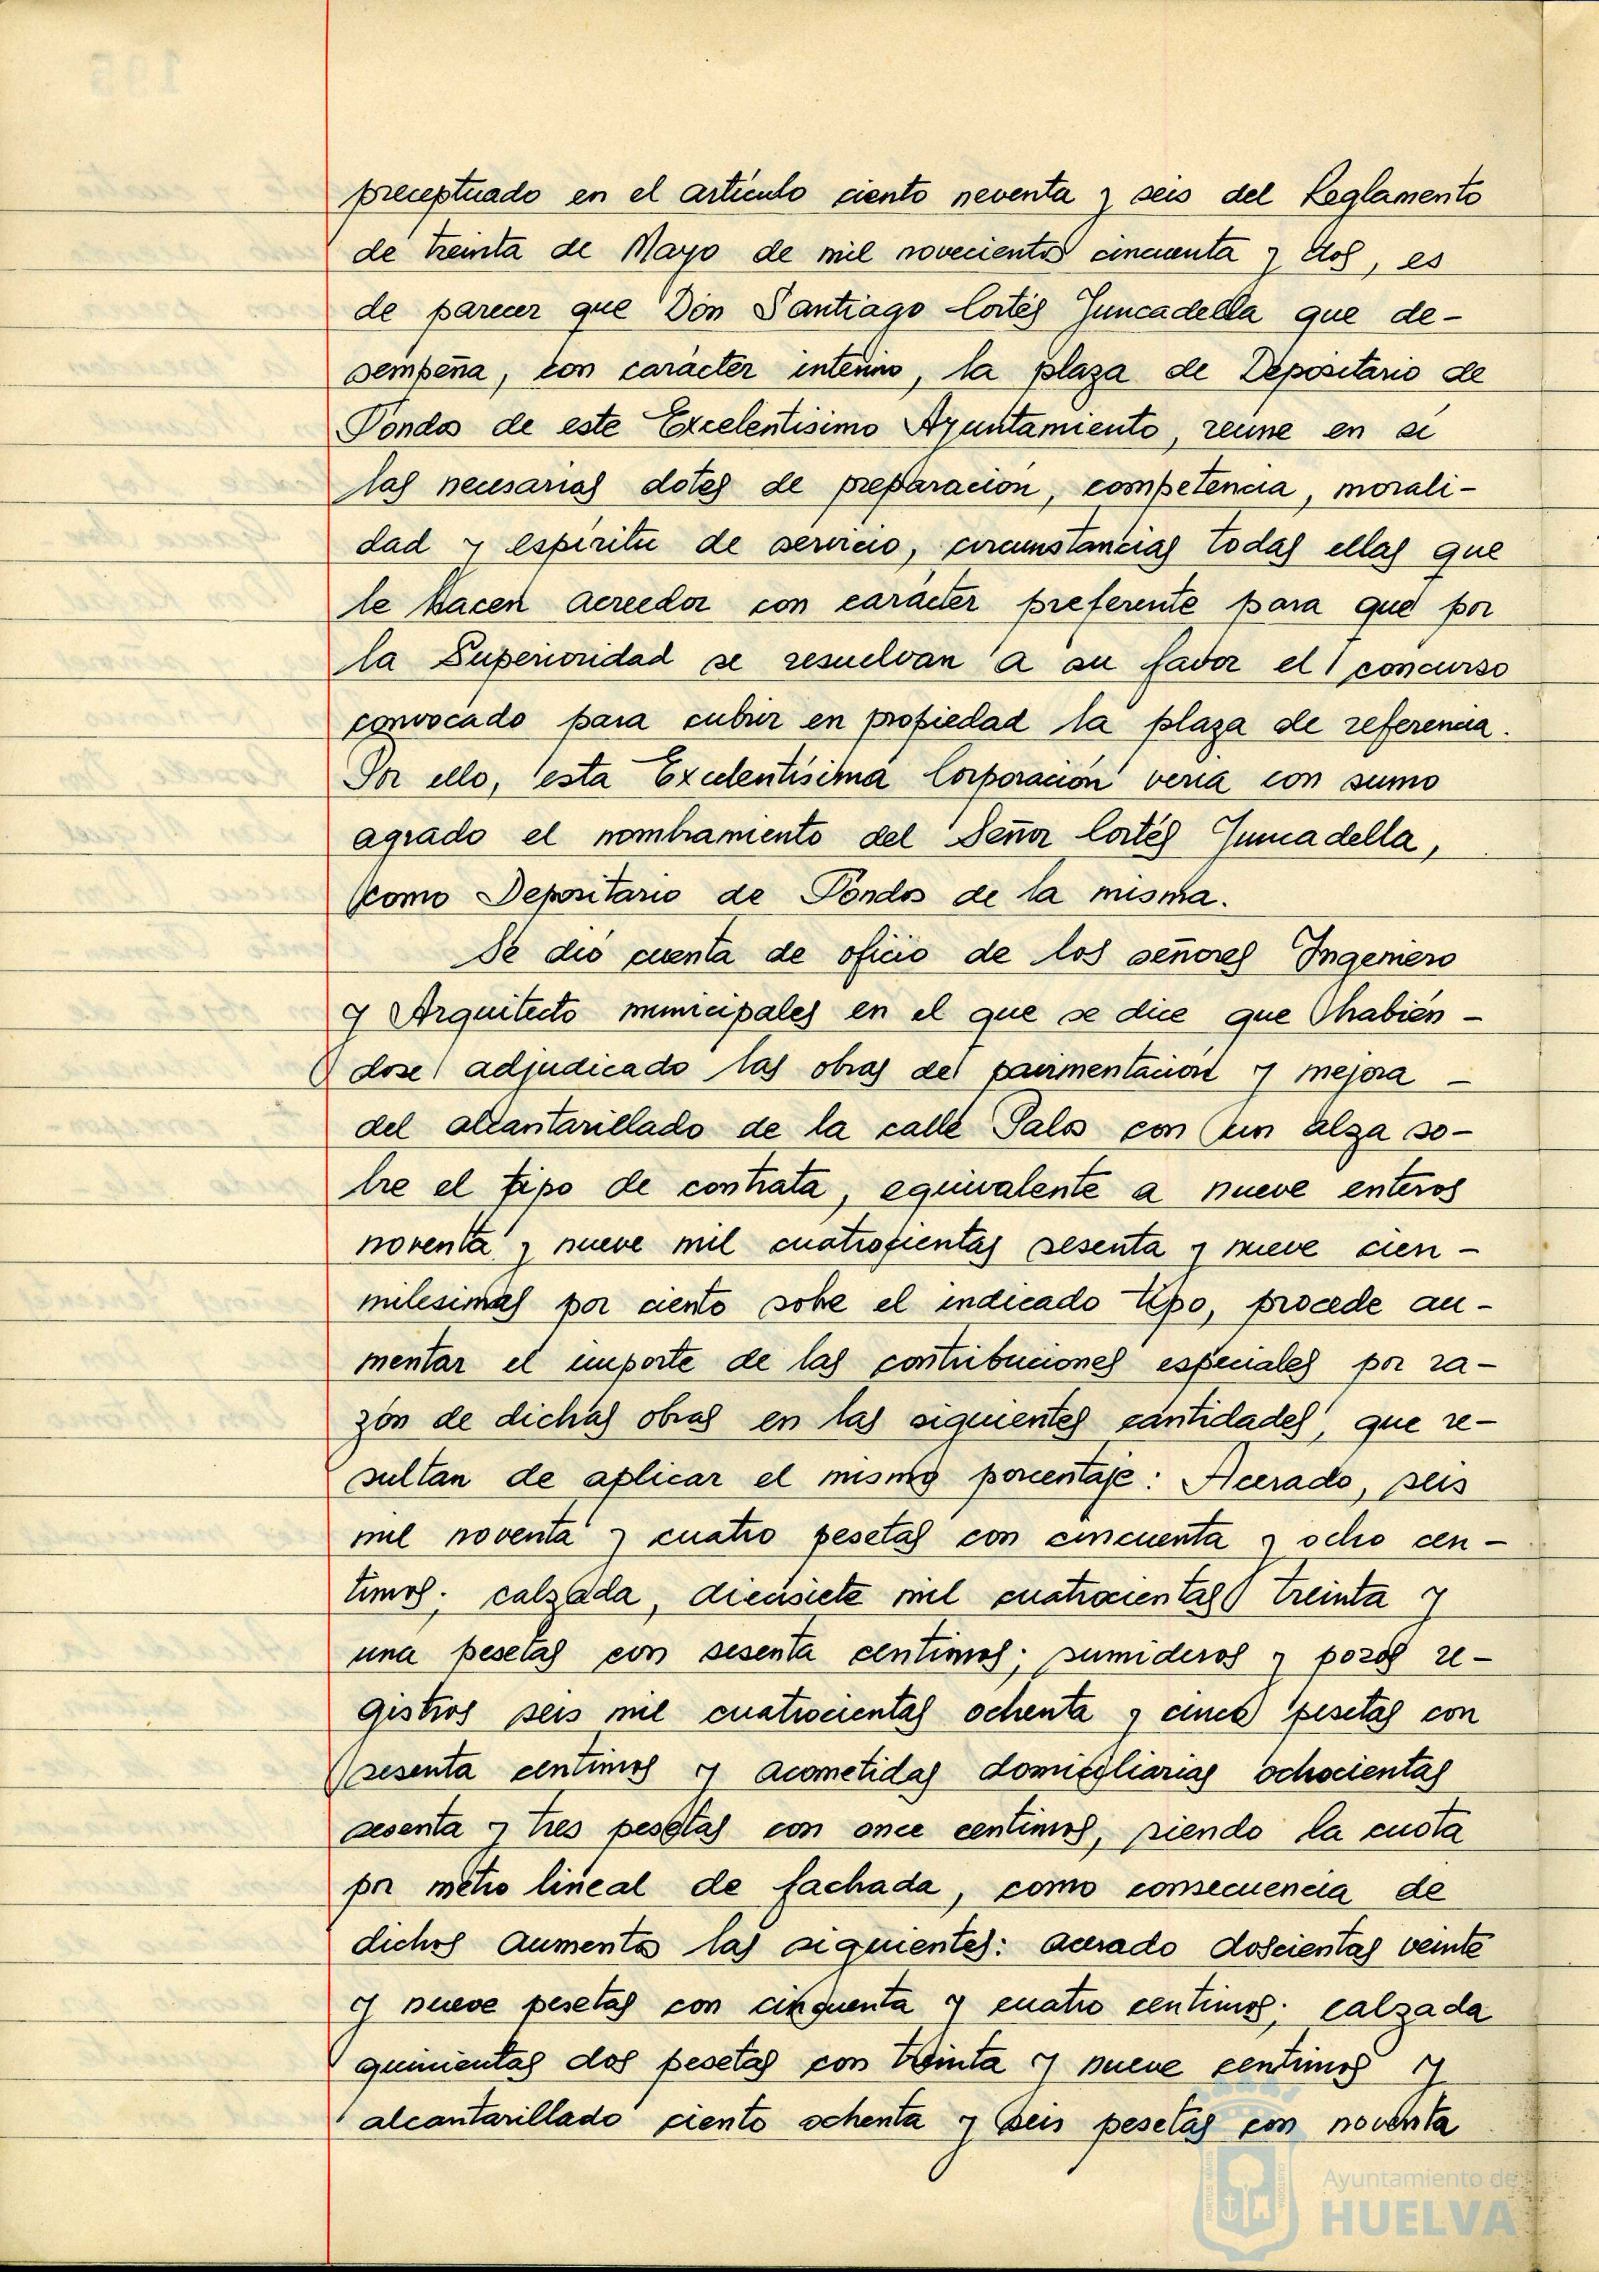 preceptuado en el artículo ciento neventa y seis del Reglamento
de treinta de Mayo de mil novecientos cincuenta y dos, es
de parecer que Don Santiago Cortés Juncadella que de-
sempeña, con carácter interino, la plaza de Depositario de
Fondos de este Excelentísimo Ayuntamiento, reúne en sí
las necesarias dotes de preparación, competencia, morali-
dad y espíritu de servicio, circunstancias todas ellas que
le hacen acreedor con carácter preferente para que por
la Superioridad se resuelvan a su favor el concurso
convocado para cubrir en propiedad la plaza de referencia.
Por ello, esta Excelentísima Corporación vería con sumo
agrado el nombramiento del Señor Cortés Juncadella,
como Depositario de Fondos de la misma.
Se dió cuenta de oficio de los señores Ingeniero
y Arquitecto municipales en el que se dice que habién-
dose adjudicado las obras de pavimentación y mejora -
del alcantarillado de la calle Palos con un alza so-
bre el tipo de contrata, equivalente a nueve enteros
noventa y nueve mil cuatrocientas sesenta y nueve cien-
milesimas por ciento sobre el indicado tipo, procede au-
mentar el importe de las contribuciones especiales por ra-
zón de dichas obras en las siguientes cantidades, que re-
sultan de aplicar el mismo porcentaje: Acerado, seis
mil noventa y cuatro pesetas con cincuenta y ocho cen-
timos; calzada, diecisiete mil cuatrocientas treinta y
una pesetas con sesenta centimos; sumideros y pozos re-
gistros seis mil cuatrocientas ochenta y cinco pesetas con
sesenta centimos y acometidas domiciliarias ochocientas
sesenta y tres pesetas con once centimos, siendo la cuota
por metro lineal de fachada, como consecuencia de
dichos aumentos las siguientes: acerado doscientas veinte
y nueve pesetas con cinquenta y cuatro centimos; calzada
quinientas dos pesetas con treinta y nueve centimos y
alcantarillado ciento ochenta y seis pesetas con noventa
Ayuntamiento de
HUELVA